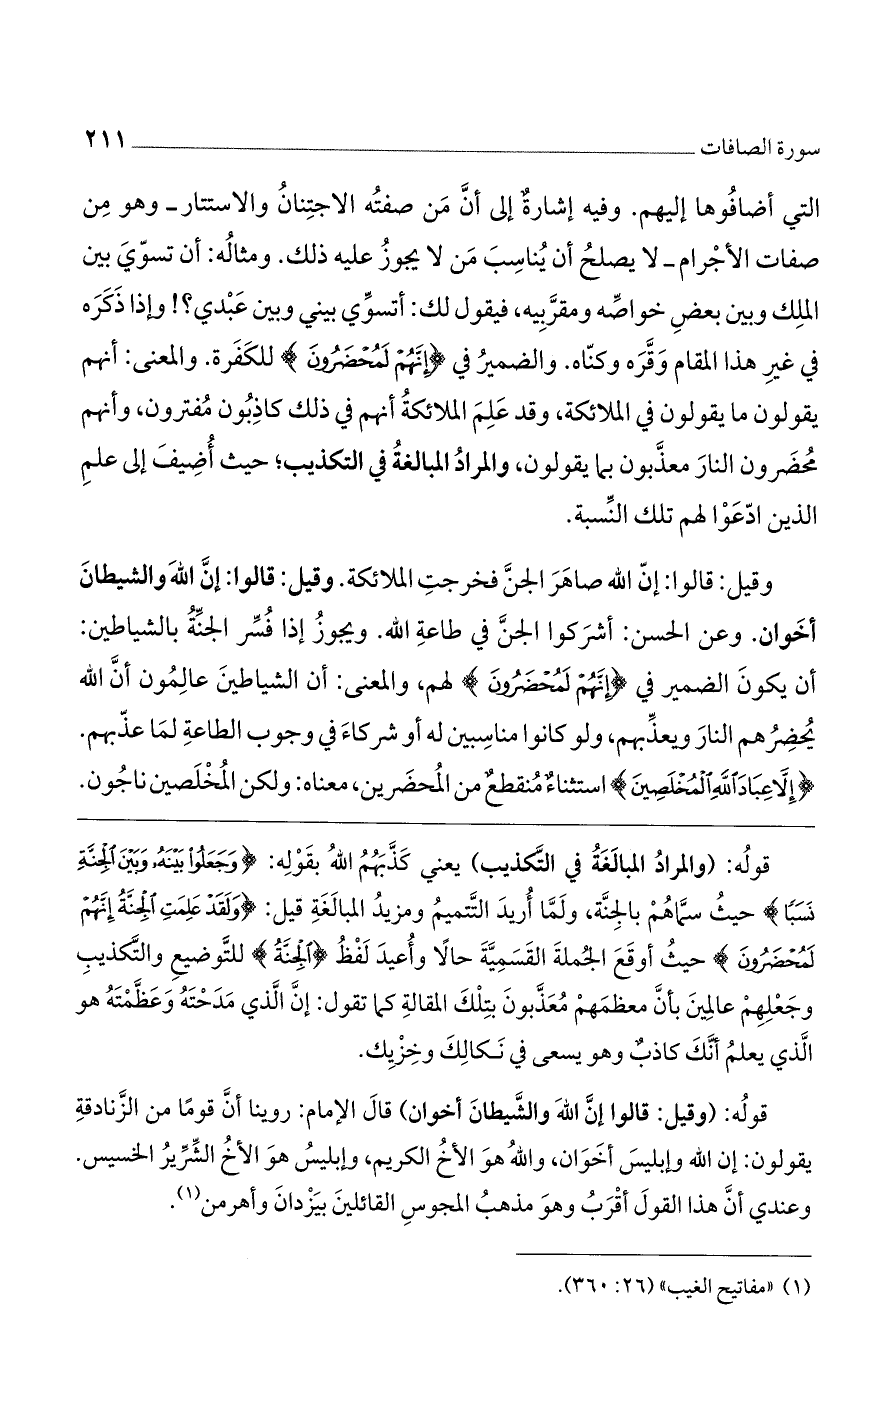 سورة الصافات ــــــــــــــــــــ ٢١١
التي أضافُوها إليهم. وفيه إشارةٌ إلى أنَّ مَن صفتُه الاجتِنانُ والاستتار ـ وهو مِن
صفات الأجْرام ـ لا يصلحُ أن يُناسِبَ مَن لا يجوزُ عليه ذلك. ومثالُه: أن تسوّيَ بين
الملِك وبين بعضِ خواصِّه ومقرَّبِيه، فيقول لك: أتسوِّي بيني وبين عَبْدي؟! وإذا ذَكَرَه
في غيرِ هذا المقام وَقَّرَه وكنّاه. والضميرُ في ﴿إِنَّهُمْ لَمُحْضَرُونَ﴾ للكَفَرة. والمعنى: أنهم
يقولون ما يقولون في الملائكة، وقد عَلِمَ الملائكةُ أنهم في ذلك كاذِبُون مُفترون، وأنهم
مُحضَرون النارَ معذَّبون بما يقولون، والمرادُ المبالغةُ في التكذيب؛ حيث أُضِيفَ إلى علمِ
الذين ادّعَوْا لهم تلك النِّسبة.
وقيل: قالوا: إنّ الله صاهَرَ الجنَّ فخرجتِ الملائكة. وقيل: قالوا: إنَّ اللهَ والشيطانَ
أخَوان. وعن الحسن: أشرَكوا الجنَّ في طاعةِ الله. ويجوزُ إذا فُسِّر الجنِّةُ بالشياطين:
أن يكونَ الضمير في ﴿إِنَّهُمْ لَمُحْضَرُونَ﴾ لهم، والمعنى: أن الشياطينَ عالِمُون أنَّ الله
يُحضِرُهم النارَ ويعذِّبهم، ولو كانوا مناسِبين له أو شركاءَ في وجوب الطاعةِ لمَا عذّبهم.
﴿إِلَّا عِبَادَ اللَّهِ الْمُخْلَصِينَ﴾ استثناءٌ مُنقطعٌ من المُحضَرين، معناه: ولكن المُخْلَصين ناجُون.
قولُه: (والمرادُ المبالَغَةُ في التَّكذيب) يعني كَذَّبَهُمُ اللهُ بقَوْلِه: ﴿وَجَعَلُوا بَيْنَهُ وَبَيْنَ الْجِنَّةِ
نَسَبًا﴾ حيثُ سمَّاهُمْ بالجِنَّة، ولَمَّا أُريدَ التَّتميمُ ومزيدُ المبالَغَةِ قيل: ﴿وَلَقَدْ عَلِمَتِ الْجِنَّةُ إِنَّهُمْ
لَمُحْضَرُونَ﴾ حيثُ أوقَعَ الجُملةَ القَسَميَّةَ حالًا وأُعيدَ لَفْظُ ﴿الْجِنَّةُ﴾ للتَّوضيعِ والتَّكذيبِ
وجَعْلِهِمْ عالِمِينَ بأنَّ معظمَهمْ مُعَذَّبونَ بتِلْكَ المقالةِ كما تقول: إنَّ الَّذي مَدَحْتَهُ وَعَظَّمْتَهُ هو
الَّذي يعلمُ أنَّكَ كاذبٌ وهو يسعى في نَكالِكَ وخِزْيِك.
قولُه: (وقيل: قالوا إنَّ اللهَ والشَّيطانَ أخوان) قالَ الإمام: روينا أنَّ قومًا من الزَّنادقةِ
يقولون: إن الله وإبليسَ أخَوَان، واللهُ هوَ الأخُ الكريم، وإبليسُ هوَ الأخُ الشِّرِّيرُ الخسيس.
وعندي أنَّ هذا القولَ أقْرَبُ وهوَ مذهبُ المجوسِ القائلينَ بيَزْدانَ وأهرمن(١).
(١) «مفاتيح الغيب» (٢٦: ٣٦٠).